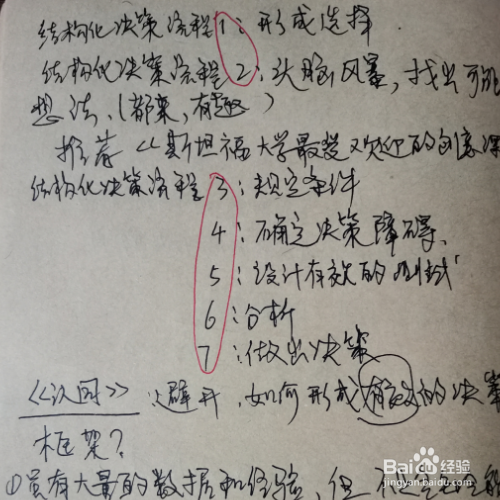 结构化决策流程1：形成选择
结构化决策流程2：头脑风暴，找出可能
想法、（都来，有趣）
推荐《斯坦福大学最受欢迎的创意课
结构化决策流程3：规定条件
4：确定决策障碍、
5：设计有效的测试
6：分析
7：做出决策
《认同》：避开，如何形成有效的决策
框架？
①虽有大量的数据和经验，但
Baidu经验
jingyan.baidu.com